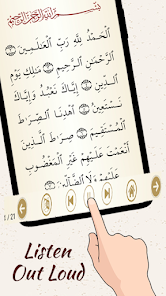 بِسْمِ اللَّهِ الرَّحْمَٰنِ الرَّحِيمِ
الْحَمْدُ لِلَّهِ رَبِّ الْعَالَمِينَ
الرَّحْمَٰنِ الرَّحِيمِ مَالِكِ يَوْمِ
الدِّينِ إِيَّاكَ نَعْبُدُ وَإِيَّاكَ
نَسْتَعِينُ اهْدِنَا الصِّرَاطَ
الْمُسْتَقِيمَ صِرَاطَ الَّذِينَ
أَنْعَمْتَ عَلَيْهِمْ غَيْرِ الْمَغْضُوبِ
عَلَيْهِمْ وَلَا الضَّالِّينَ
1 / 21
Listen
Out Loud